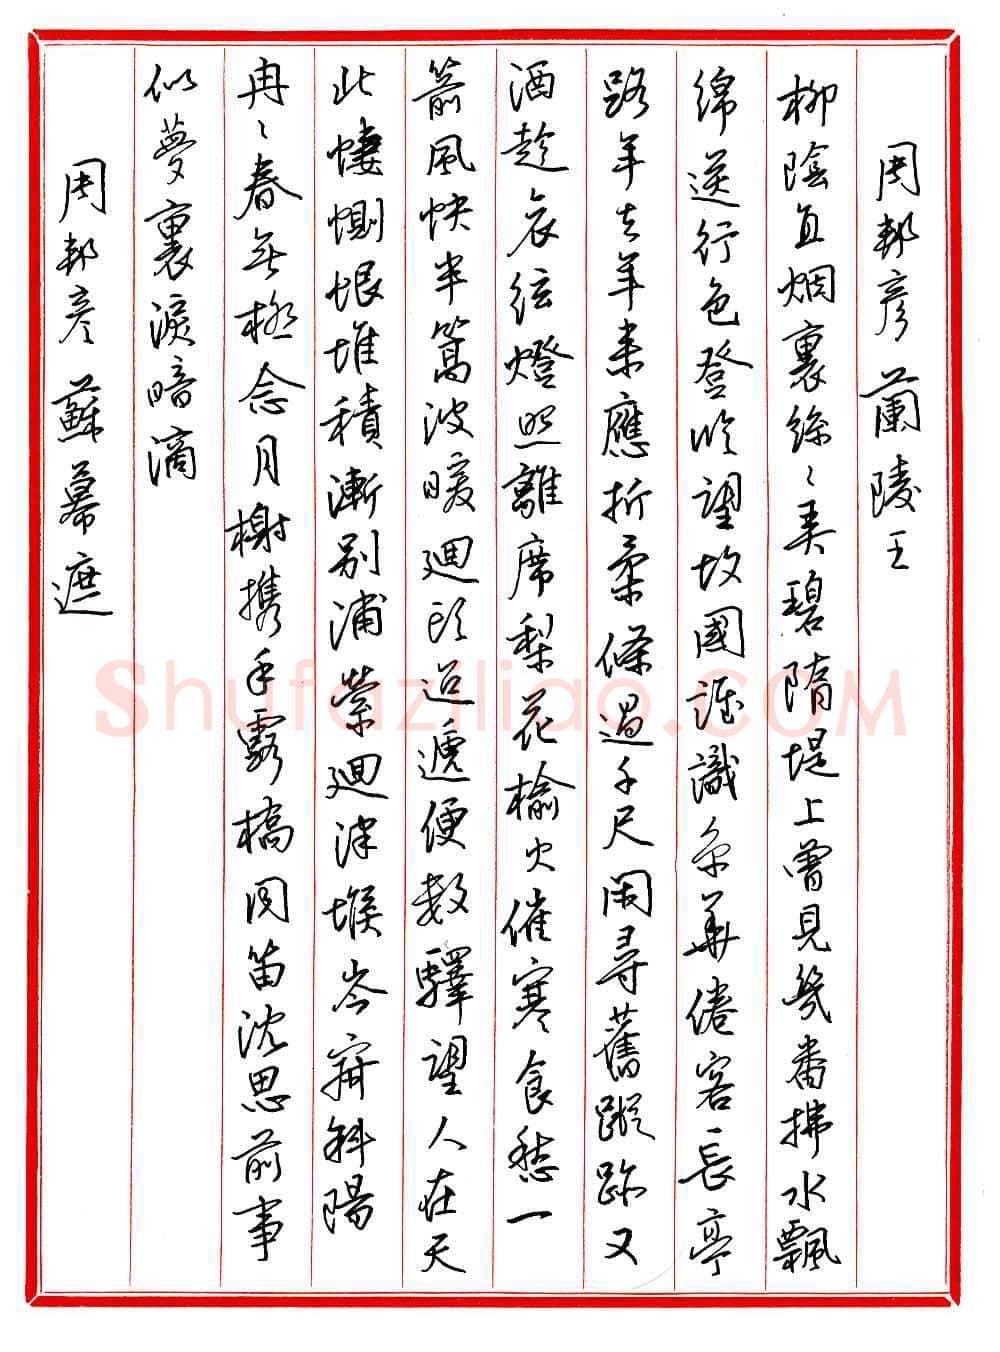 周邦彥 蘭陵王
柳陰直烟裏絲絲弄碧隋堤上曾見幾番拂水飄
綿送行色登臨望故國誰識京華倦客長亭
路年去年來應折柔條過千尺閑尋舊蹤跡又
酒趁哀絃燈照離席梨花榆火催寒食愁一
箭風快半篙波暖迴頭迢遞便數驛望人在天
此悽惻恨堆積漸別浦縈迴津堠岑寂斜陽
冉冉春無極念月榭攜手露橋聞笛沈思前事
似夢裏淚暗滴
周邦彥 蘇幕遮
Shufaziliao.COM